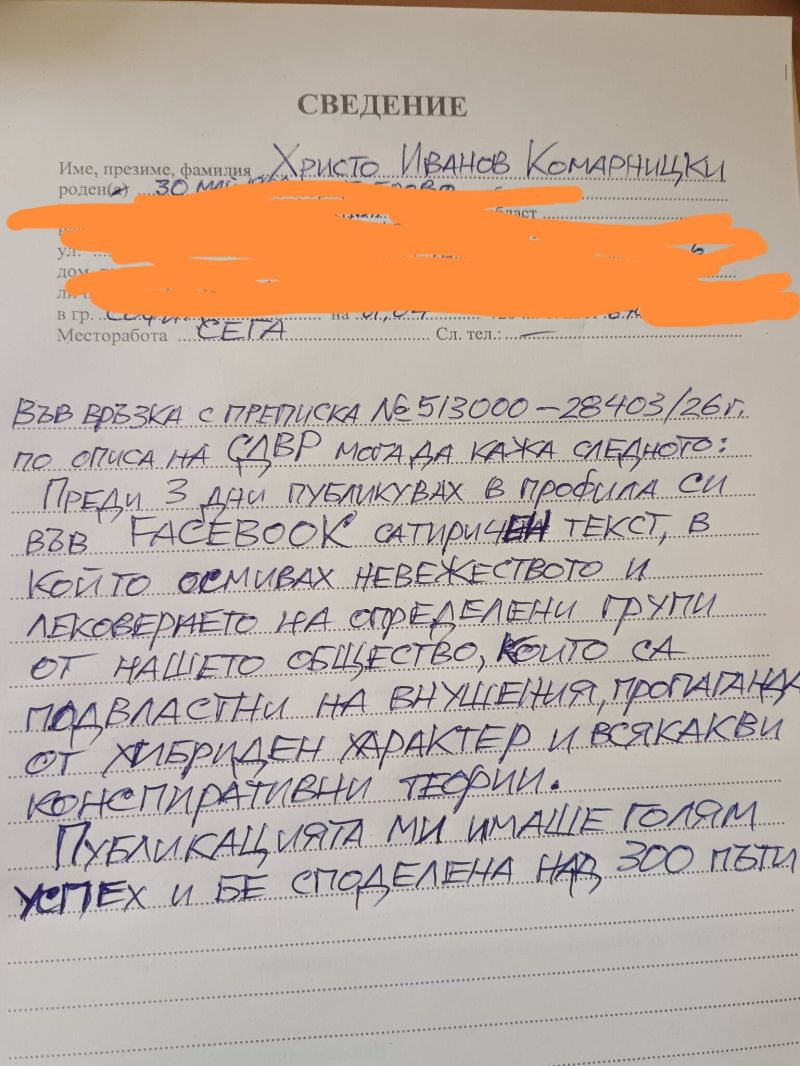 СВЕДЕНИЕ
Име, презиме, фамилия Христо Иванов Комарницки
роден(а) 30
ул.
дом.
в гр. на 01.04
Месторабота СЕГА Сл. тел.: —
ВЪВ ВРЪЗКА С ПРЕПИСКА № 513000 – 28403/26 г.
ПО ОПИСА НА СДВР МОГА ДА КАЖА СЛЕДНОТО:
ПРЕДИ 3 ДНИ ПУБЛИКУВАХ В ПРОФИЛА СИ
ВЪВ FACEBOOK САТИРИЧЕН ТЕКСТ, В
КОЙТО ОСМИВАХ НЕВЕЖЕСТВОТО И
ЛЕКОВЕРИЕТО НА ОПРЕДЕЛЕНИ ГРУПИ
ОТ НАШЕТО ОБЩЕСТВО, КОИТО СА
ПОДВЛАСТНИ НА ВНУШЕНИЯ, ПРОПАГАНДА
ОТ ХИБРИДЕН ХАРАКТЕР И ВСЯКАКВИ
КОНСПИРАТИВНИ ТЕОРИИ.
ПУБЛИКАЦИЯТА МИ ИМАШЕ ГОЛЯМ
УСПЕХ И БЕ СПОДЕЛЕНА НАД 300 ПЪТИ